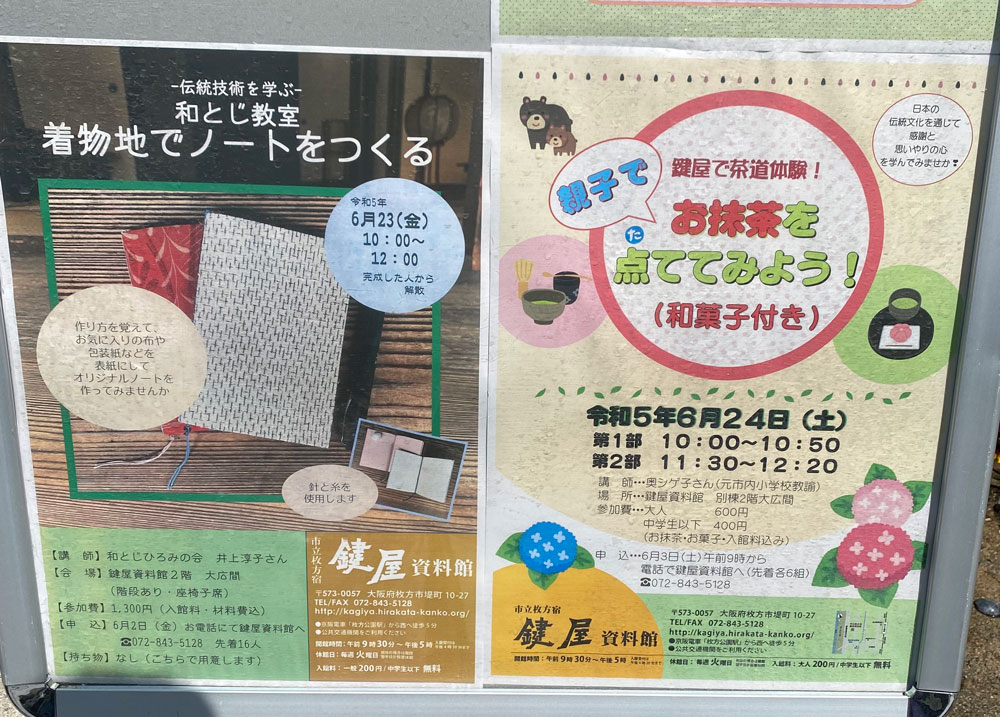 -伝統技術を学ぶ-
和とじ教室
着物地でノートをつくる
令和5年
6月23(金)
10:00～
12:00
完成した人から
解散
作り方を覚えて、
お気に入りの布や
包装紙などを
表紙にして
オリジナルノートを
作ってみませんか
針と糸を
使用します
【講　師】和とじひろみの会　井上淳子さん
【会　場】鍵屋資料館2階　大広間
（階段あり・座椅子席）
【参加費】1,300円（入館料・材料費込）
【申　込】6月2日（金）お電話にて鍵屋資料館へ
☎072-843-5128　先着16人
【持ち物】なし（こちらで用意します）
市立枚方宿
鍵屋資料館
〒573-0057　大阪府枚方市堤町 10-27
TEL/FAX 072-843-5128
http://kagiya.hirakata-kanko.org/
●京阪電車「枚方公園駅」から西へ徒歩5分
●公共交通機関をご利用ください
開館時間：午前9時30分～午後5時
休館日：毎週火曜日
入館料：一般200円/中学生以下 無料
日本の
伝統文化を通じて
感謝と
思いやりの心
を学んでみませんか？
親子で
鍵屋で茶道体験！
お抹茶を
た
点ててみよう！
（和菓子付き）
令和5年6月24日（土）
第1部　10:00～10:50
第2部　11:30～12:20
講　師…奥シゲ子さん（元市内小学校教諭）
場　所…鍵屋資料館　別棟2階大広間
参加費…大人　600円
中学生以下　400円
（お抹茶・お菓子・入館料込み）
申　込…6月3日（土）午前9時から
電話で鍵屋資料館へ（先着各6組）
☎072-843-5128
市立枚方宿
鍵屋資料館
開館時間：午前9時30分～午後5時
〒573-0057　大阪府枚方市堤町 10-27
TEL/FAX 072-843-5128
http://kagiya.hirakata-kanko.org/
●京阪電車「枚方公園駅」から西へ徒歩5分
●公共交通機関をご利用ください
休館日：毎週火曜日
入館料：大人200円/中学生以下 無料